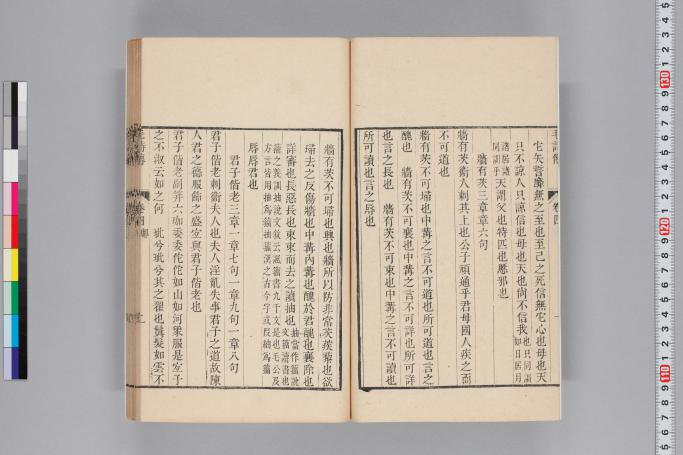 毛詩傳 卷四
它矢誓靡無之至也至己之死信無它心也母也天
只不諒人只諒信也母也天也尚不信我也只同訓如日居月
諸居諸同訓乎天謂父也特匹也慝邪也
牆有茨三章章六句
牆有茨衞人刺其上也公子頑通乎君母國人疾之而
不可道也
牆有茨不可埽也中冓之言不可道也所可道也言之
醜也 牆有茨不可襄也中冓之言不可詳也所可詳
也言之長也 牆有茨不可束也中冓之言不可讀也
所可讀也言之辱也
牆有茨不可埽也興也牆所以防非常茨蒺藜也欲
埽去之反傷牆也中冓內冓也醜於君醜也襄除也
詳審也長惡長也束束而去之讀抽也抽當作籀說文籀讀書也
方言皆用抽爲籀抽籀漢之古今字或段紬爲籀
辱辱君也
君子偕老三章一章七句一章九句一章八句
君子偕老刺衞夫人也夫人淫亂失事君子之道故陳
人君之德服飾之盛宜與君子偕老也
君子偕老副笄六珈委委佗佗如山如河象服是宜子
之不淑云如之何 玼兮玼兮其之翟也鬒髮如雲不
毛詩傳 卷四 鄘
130
120
110